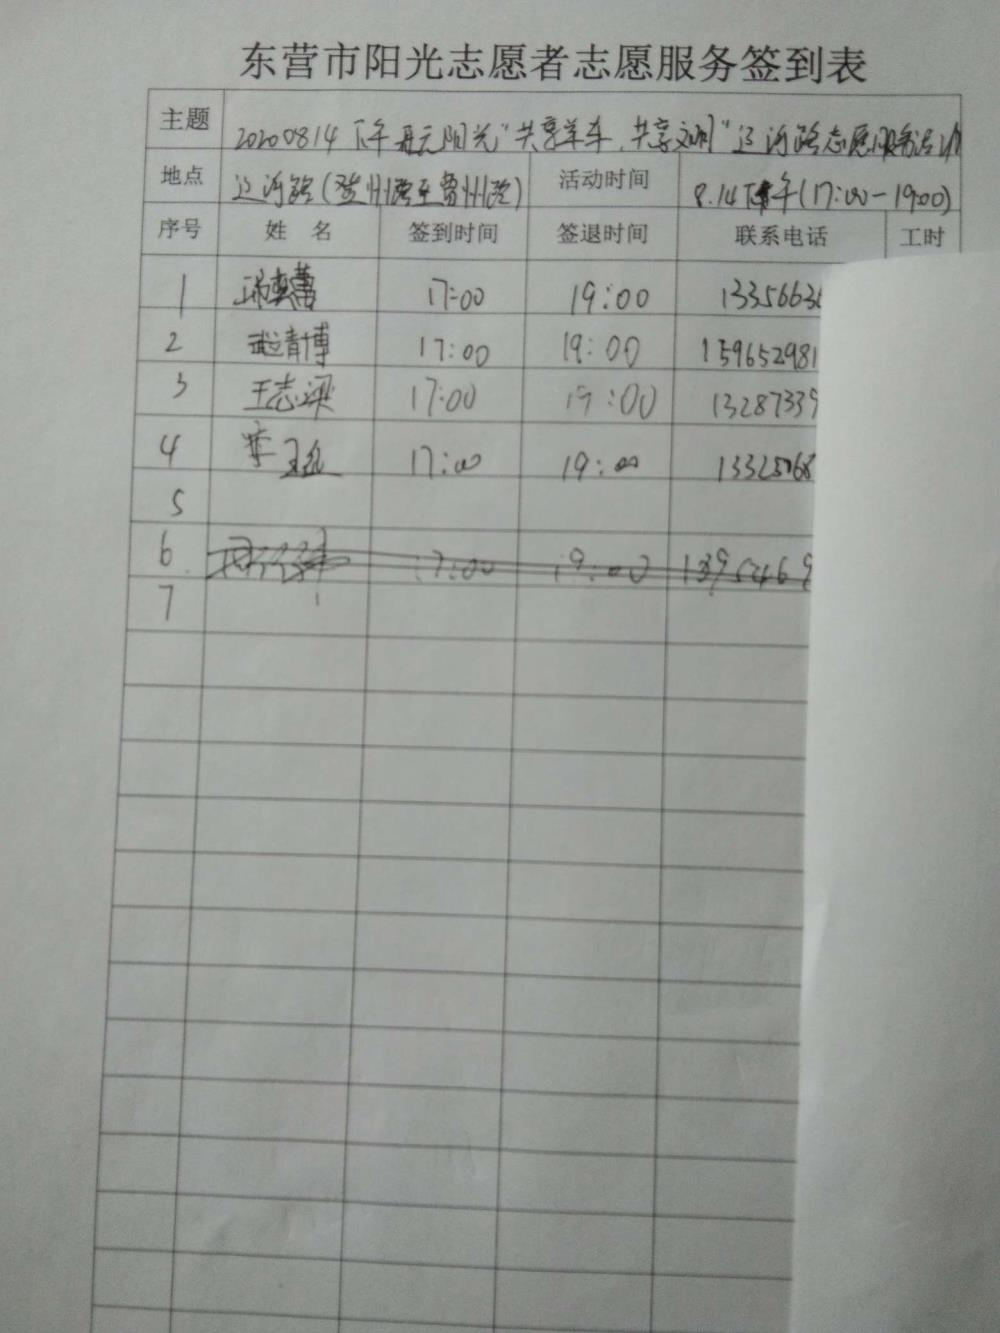 东营市阳光志愿者志愿服务签到表
主题 20200814下午开元阳光"共享单车,共享文明"辽河路志愿服务活动
地点 辽河路(登州路至曹州路) 活动时间 8.14下午(17:00-19:00)
序号 姓 名 签到时间 签退时间 联系电话 工时
1 17:00 19:00 1335663
2 赵青博 17:00 19:00 159652981
3 王志梁 17:00 19:00 13287339
4 李 17:00 19:00 13325068
5
6 17:00 19:00 13954469
7